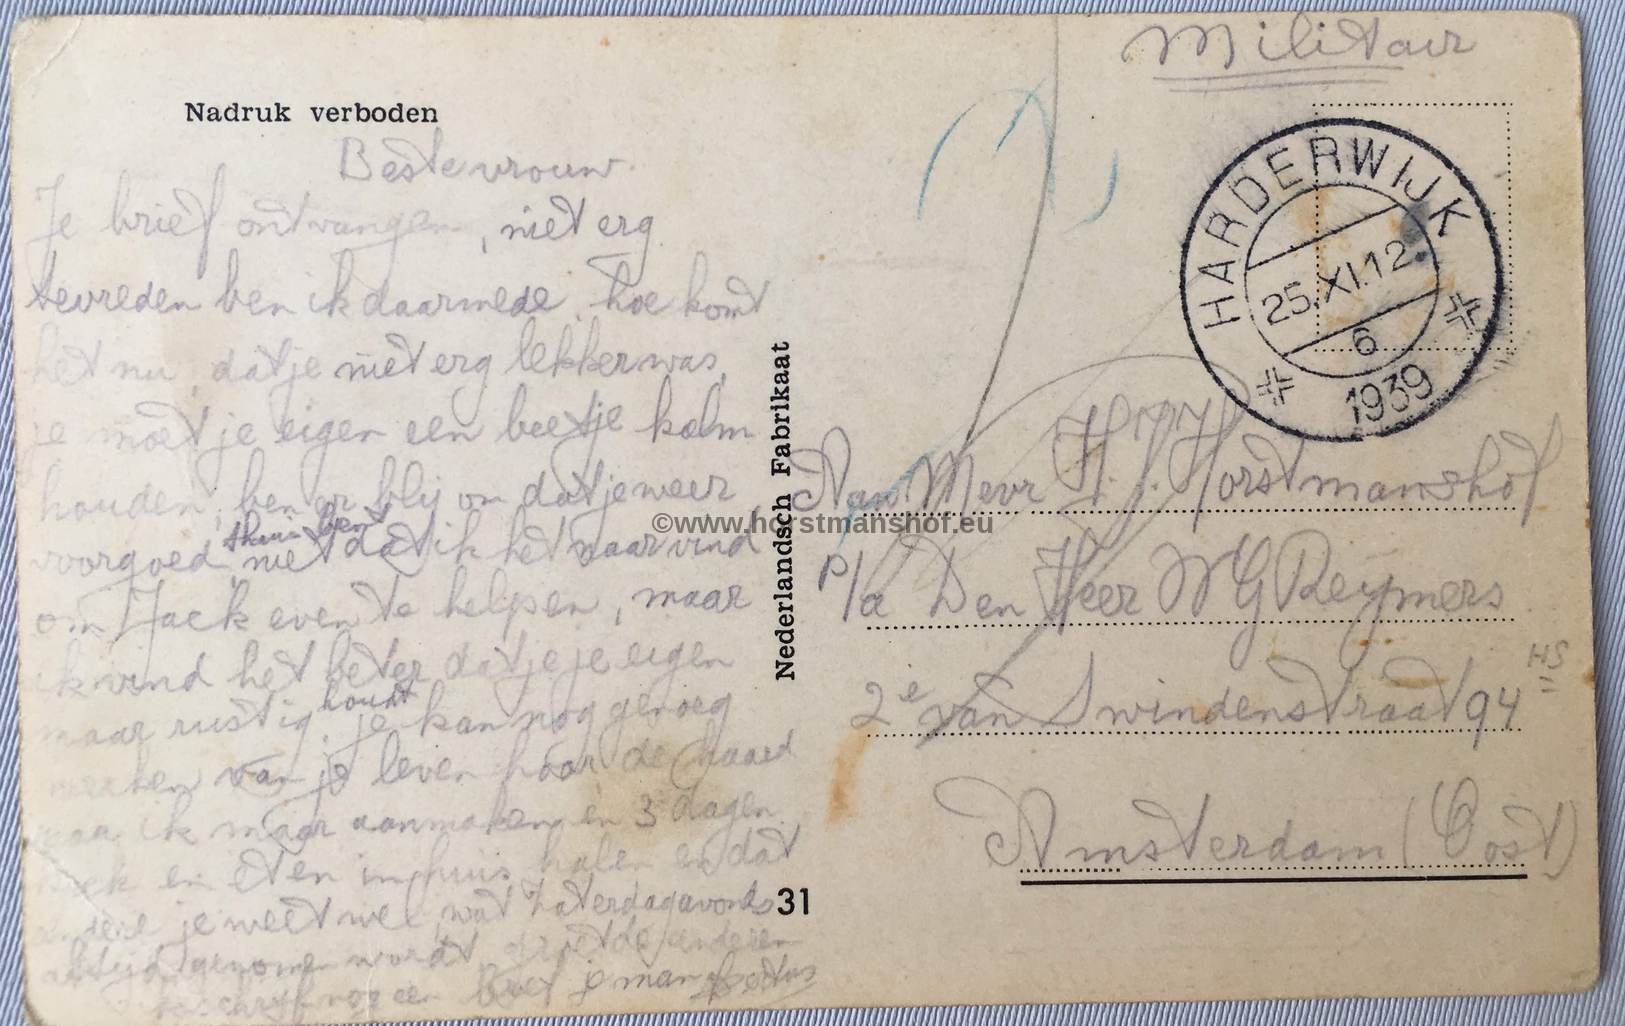 Nadruk verboden
Beste vrouw.
Je brief ontvangen, niet erg
tevreden ben ik daarmede, hoe komt
het nu, dat je niet erg lekker was,
je moet je eigen een beetje kalm
houden, ben er blij om dat je weer
voorgoed thuis bent, niet dat ik het naar vind
om Jack even te helpen, maar
ik vind het beter dat je je eigen
maar rustig houdt, je kan nog genoeg
werken van je leven hoor de haard
maar ik maar aanmaken en 3 dagen
koek en eten in huis halen en dat
andere je weet wel, wat Zaterdagavonds
altijd genomen wordt, groet de anderen
schrijf nog een je man
Nederlandsch Fabrikaat
31
Militair
HARDERWIJK
25.XI.12
6
1939
Aan Mevr H. J. Horstmanshof
p/a Den Heer W G Reymers
2e van Swindenstraat 94
HS
Amsterdam (Oost)
©www.horstmanshof.eu